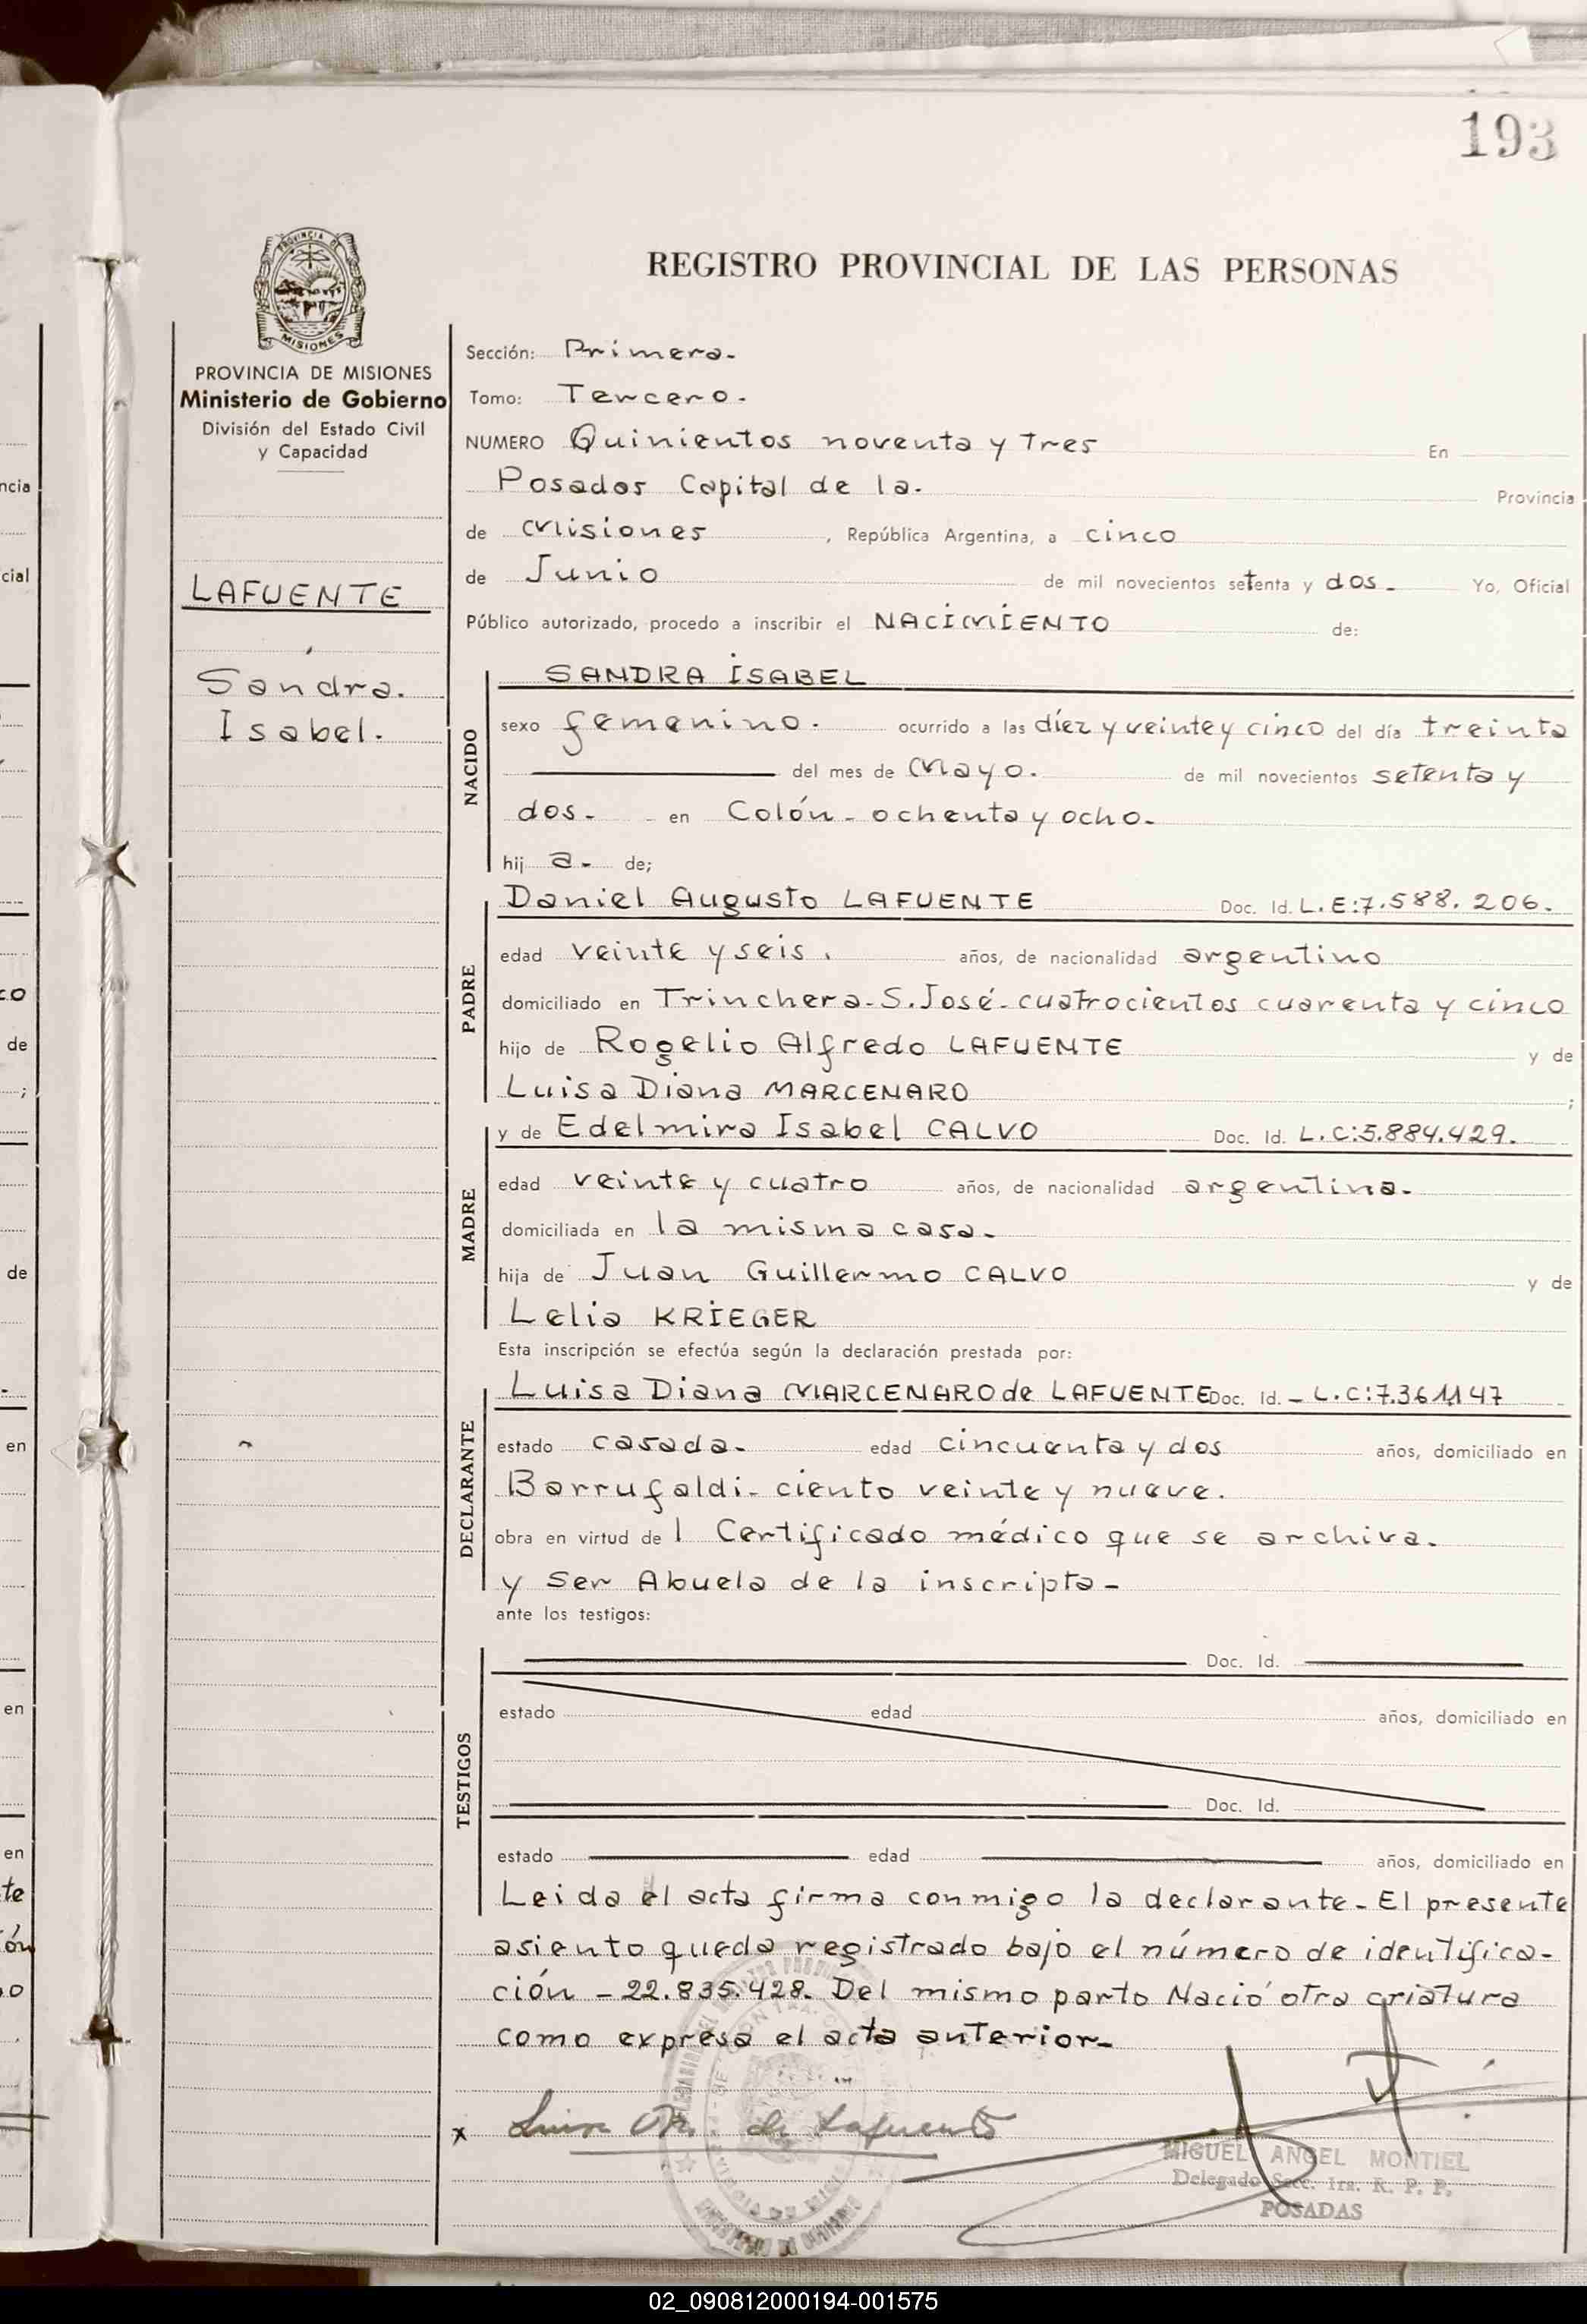 193
PROVINCIA DE
MISIONES
REGISTRO PROVINCIAL DE LAS PERSONAS
PROVINCIA DE MISIONES
Ministerio de Gobierno
División del Estado Civil
y Capacidad
LAFUENTE
Sandra.
Isabel.
Sección: Primera.
Tomo: Tercero.
NUMERO Quinientos noventa y tres En
Posadas Capital de la. Provincia
de Misiones, República Argentina, a cinco
de Junio de mil novecientos setenta y dos. Yo, Oficial
Público autorizado, procedo a inscribir el NACIMIENTO de:
NACIDO
SANDRA ISABEL
sexo femenino. ocurrido a las díez y veinte y cinco del día treinta
del mes de Mayo. de mil novecientos setenta y
dos. en Colón - ochenta y ocho.
hij a. de;
PADRE
Daniel Augusto LAFUENTE Doc. Id. L.E:7.588.206.
edad veinte y seis. años, de nacionalidad argentino
domiciliado en Trinchera-S.José-cuatrocientos cuarenta y cinco
hijo de Rogelio Alfredo LAFUENTE y de
Luisa Diana MARCENARO ;
MADRE
y de Edelmira Isabel CALVO Doc. Id. L.C:5.884.429.
edad veinte y cuatro años, de nacionalidad argentina.
domiciliada en la misma casa.
hija de Juan Guillermo CALVO y de
Lelia KRIEGER
Esta inscripción se efectúa según la declaración prestada por:
DECLARANTE
Luisa Diana MARCENARO de LAFUENTE Doc. Id. - L.C:7.361.147
estado casada. edad cincuenta y dos años, domiciliado en
Barrufaldi - ciento veinte y nueve.
obra en virtud de l Certificado médico que se archiva.
y ser Abuela de la inscripta -
ante los testigos:
TESTIGOS
Doc. Id.
estado edad años, domiciliado en
Doc. Id.
estado edad años, domiciliado en
Leida el acta firma conmigo la declarante. El presente
asiento queda registrado bajo el número de identifica-
ción - 22.835.428. Del mismo parto Nació otra criatura
como expresa el acta anterior.
x Luisa M. de Lafuente
MIGUEL ANGEL MONTIEL
Delegado Secc. 1ra. R. P. P.
POSADAS
02_090812000194-001575